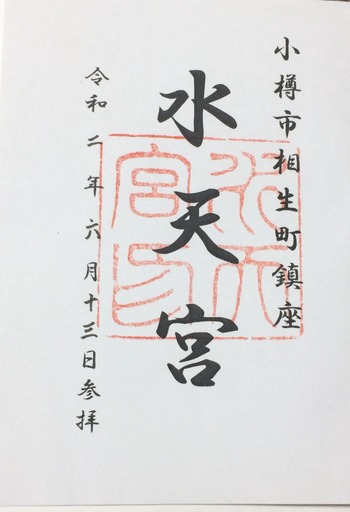 小樽市相生町鎮座
水天宮
令和二年六月十三日参拝
水天宮印